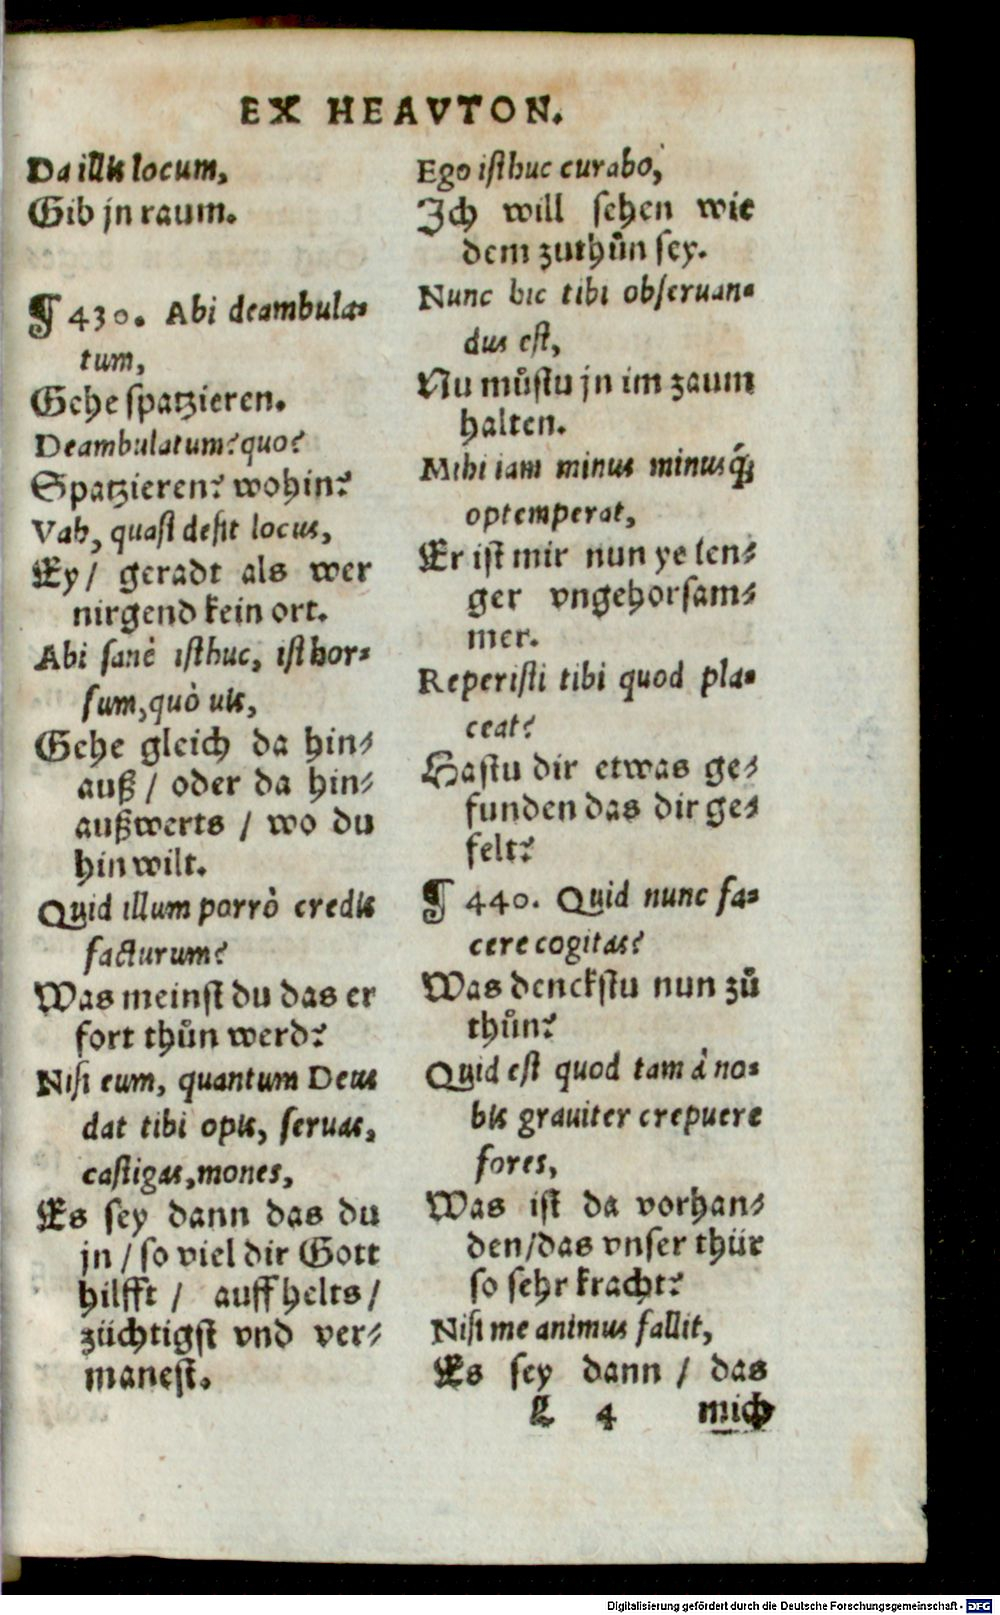 EX HEAVTON.
Da illis locum,
Gib jn raum.
¶ 430. Abi deambula-
tum,
Gehe spatzieren.
Deambulatum? quo?
Spatzieren? wohin?
Vah, quasi desit locus,
Ey / geradt als wer
nirgend kein ort.
Abi sanè isthuc, isthor-
sum, quò uis,
Gehe gleich da hin-
auß / oder da hin-
außwerts / wo du
hin wilt.
Quid illum porrò credis
facturum?
Was meinst du das er
fort thůn werd?
Nisi eum, quantum Deus
dat tibi opis, seruas,
castigas, mones,
Es sey dann das du
jn / so viel dir Gott
hilfft / auffhelts /
züchtigst vnd ver-
manest.
Ego isthuc curabo,
Jch will sehen wie
dem zuthůn sey.
Nunc hic tibi obseruan-
dus est,
Nu můstu jn im zaum
halten.
Mihi iam minus minusq́;
optemperat,
Er ist mir nun ye len-
ger vngehorsam-
mer.
Reperisti tibi quod pla-
ceat?
Hastu dir etwas ge-
funden das dir ge-
felt?
¶ 440. Quid nunc fa-
cere cogitas?
Was denckstu nun zů
thůn?
Quid est quod tam à no-
bis grauiter crepuere
fores,
Was ist da vorhan-
den / das vnser thür
so sehr kracht?
Nisi me animus fallit,
Es sey dann / das
L 4 mich
Digitalisierung gefördert durch die Deutsche Forschungsgemeinschaft - DFG